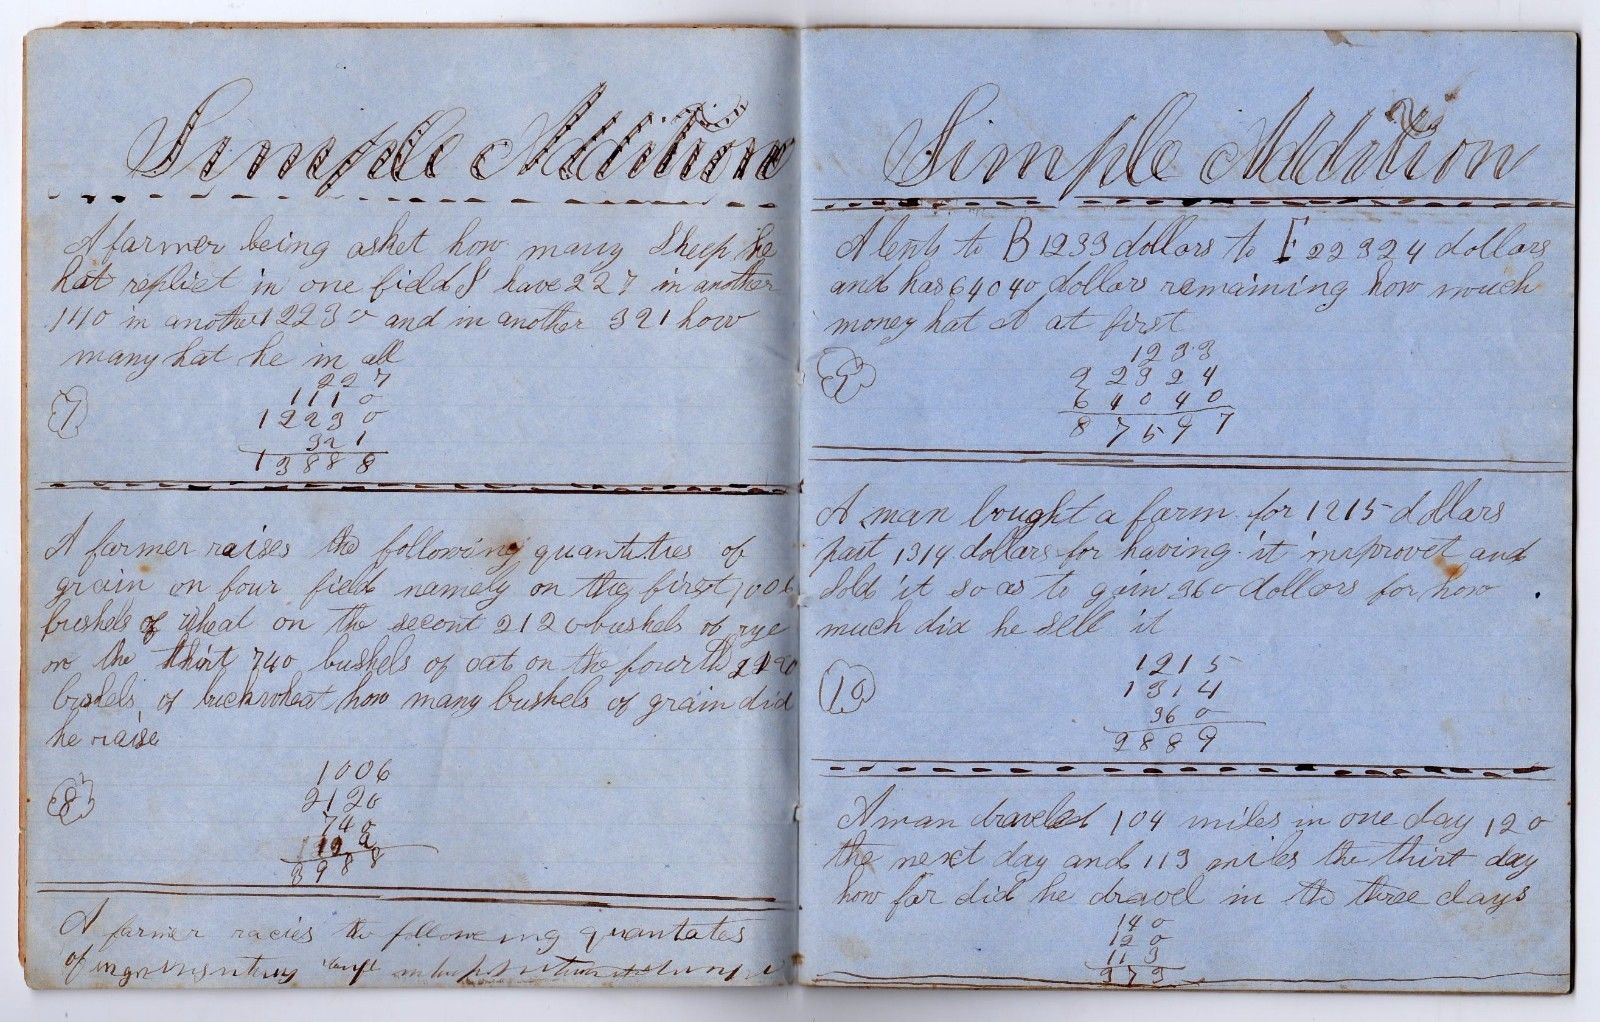 Simple Addition
A farmer being asket how many Sheep he
hat repliet in one field I have 227 in another
1110 in another 12230 and in another 321 how
many hat he in all
7
227
1110
12230
321
13888
A farmer raises the following quantities of
grain on four field namely on the first 1006
bushels of wheat on the secont 2120 bushels of rye
on the thirt 740 bushels of oat on the fourth
bushels of buckwheat how many bushels of grain did
he raise
8
1006
2120
740
3988
A farmer racies the following quantates
of
Simple Addition
A lents to B 1233 dollars to F 22324 dollars
and has 64040 dollars remaining how much
money hat A at first
9
1233
22324
64040
87597
A man bought a farm for 1215 dollars
pait 1314 dollars for having it improvet and
Sold it so as to gain 360 dollars for how
much did he sell it
10
1215
1314
360
2889
A man draveled 104 miles in one day 120
the next day and 113 miles the thirt day
how far did he dravel in the three days
140
120
113
373